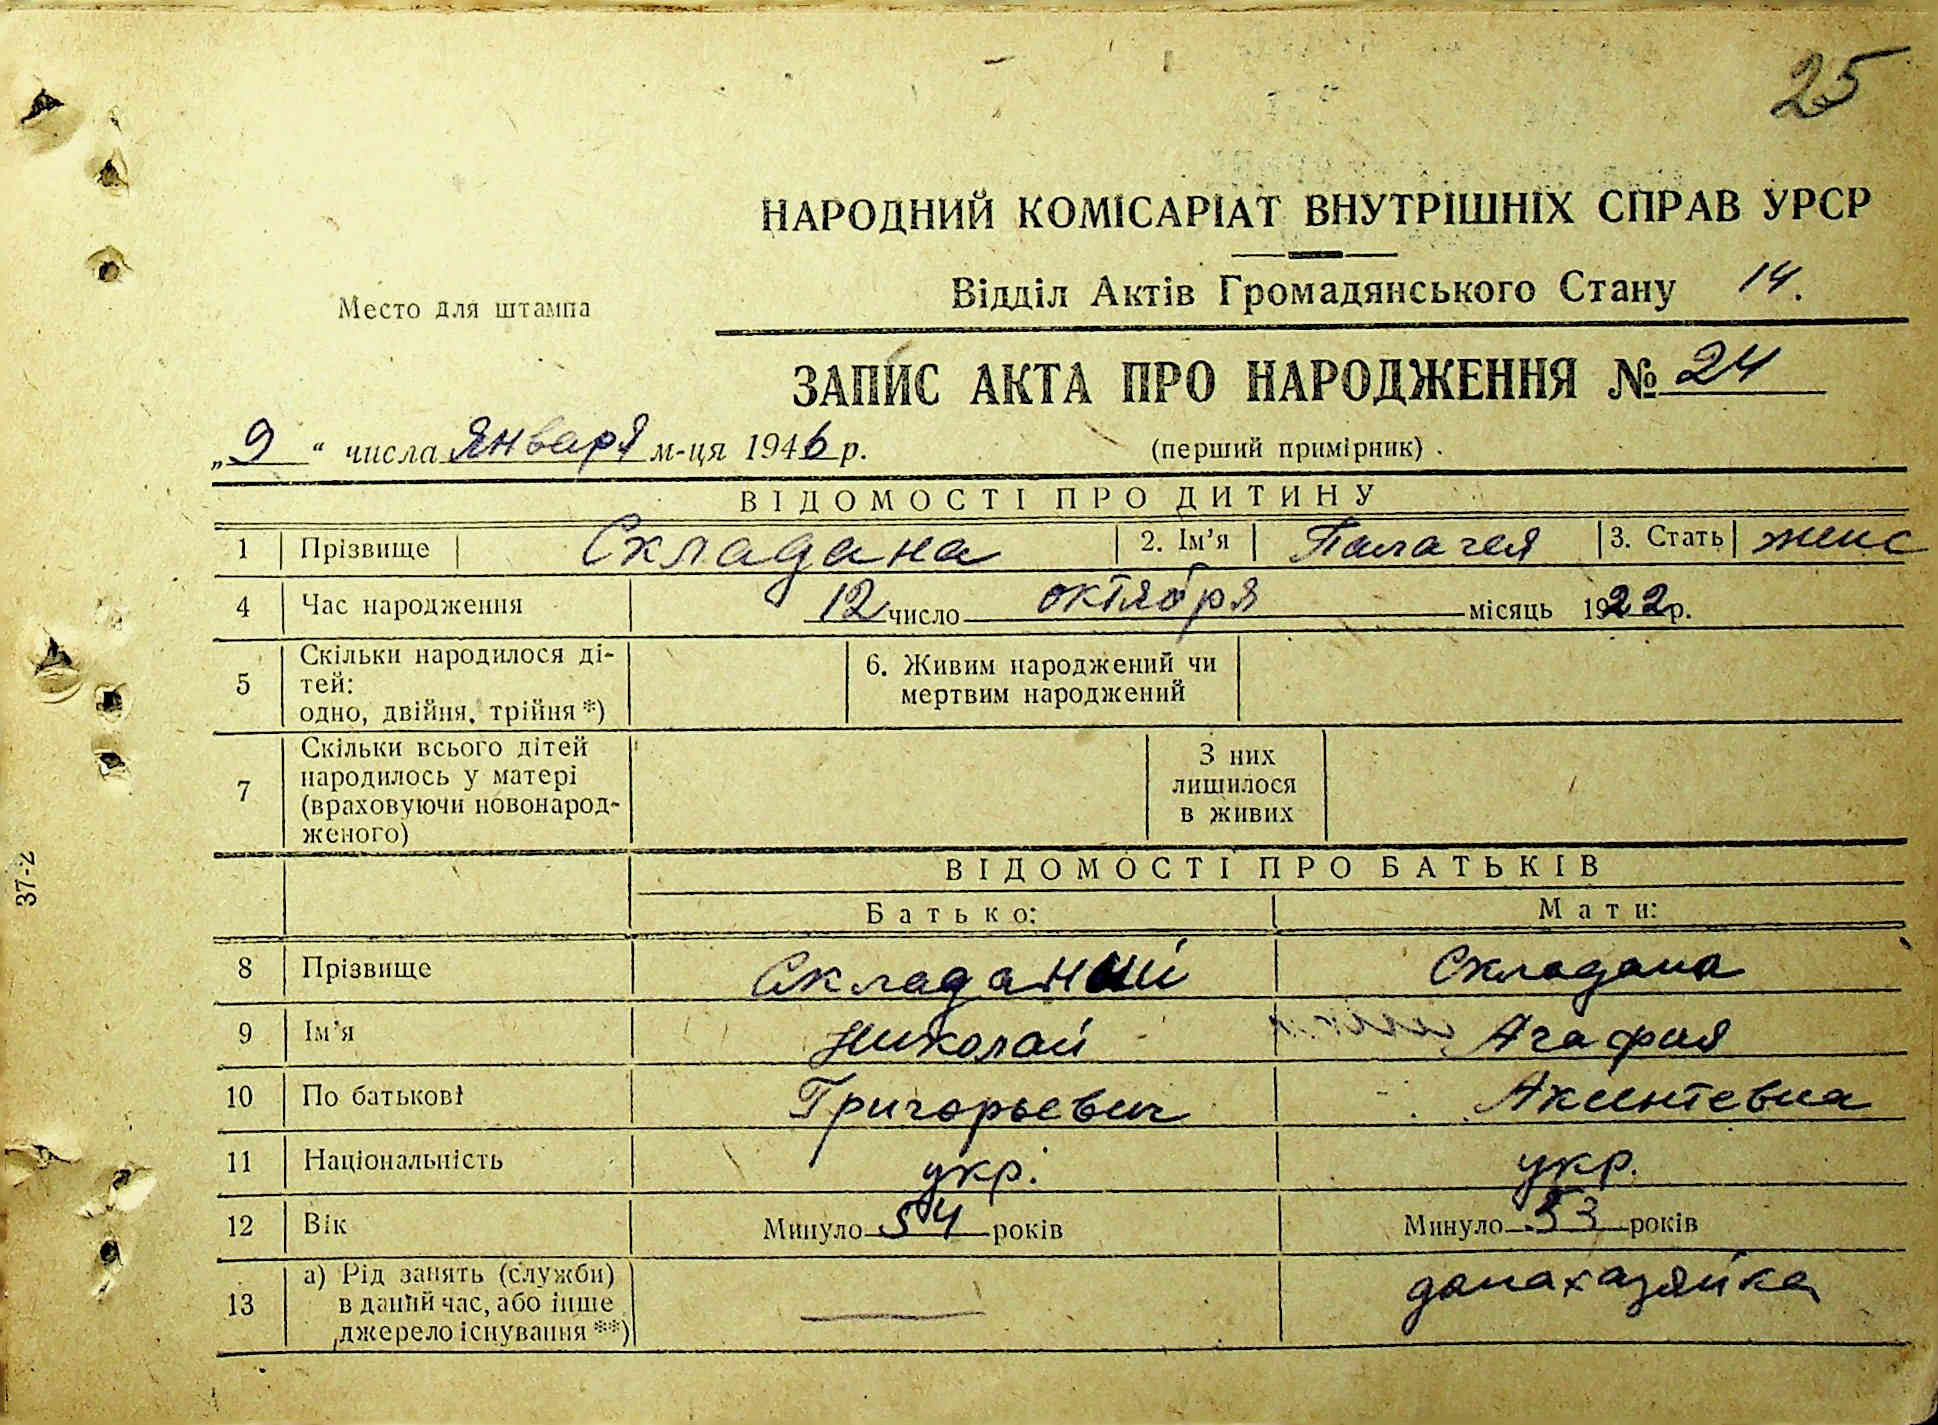 25
НАРОДНИЙ КОМІСАРІАТ ВНУТРІШНІХ СПРАВ УРСР
Место для штампа
Відділ Актів Громадянського Стану 14.
ЗАПИС АКТА ПРО НАРОДЖЕННЯ № 24
„9“ числа Января м-ця 1946 р.
(перший примірник).
ВІДОМОСТІ ПРО ДИТИНУ
1 Прізвище Складана 2. Ім'я Палагея 3. Стать женс
4 Час народження 12 число октября місяць 1922р.
5 Скільки народилося ді-
тей:
одно, двійня, трійня *)
6. Живим народжений чи
мертвим народжений
7 Скільки всього дітей
народилось у матері
(враховуючи новонарод-
женого)
З них
лишилося
в живих
37-2
ВІДОМОСТІ ПРО БАТЬКІВ
Батько: Мати:
8 Прізвище Складаний Складана
9 Ім'я Николай Агафия
10 По батькові Григорьевич Акинтевна
11 Національність укр. укр.
12 Вік Минуло 54 років Минуло 53 років
13 а) Рід занять (служби)
в даний час, або інше
джерело існування **)
— домахазяйка